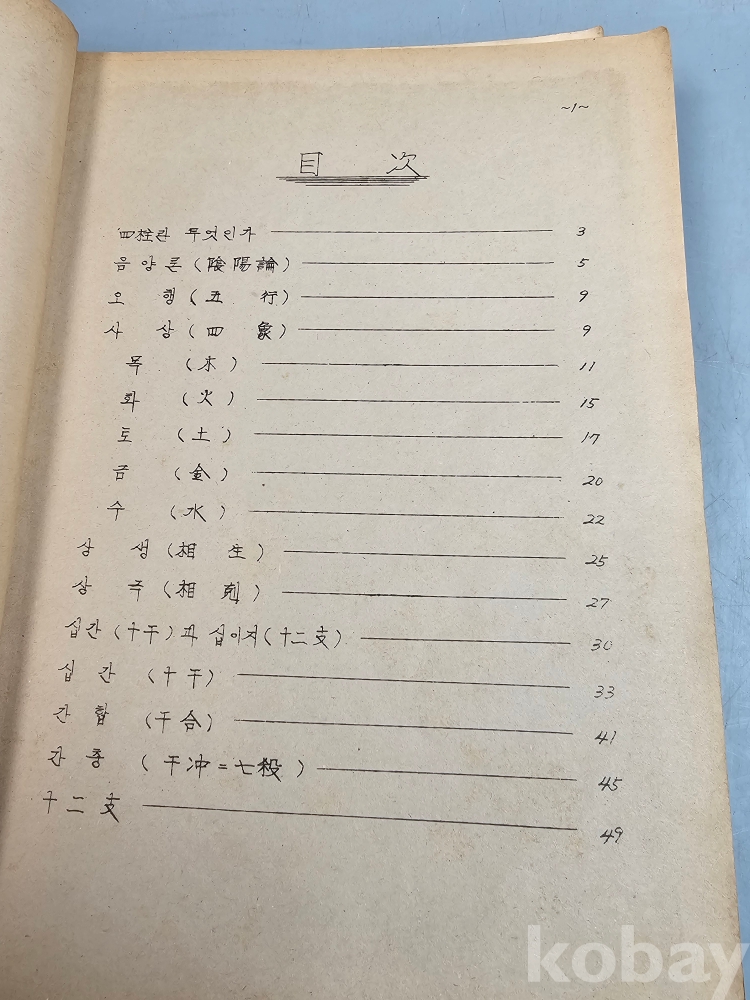 ~1~
目 次
四柱란 무엇인가 3
음양론(陰陽論) 5
오 행(五 行) 9
사 상(四 象) 9
목 (木) 11
화 (火) 15
토 (土) 17
금 (金) 20
수 (水) 22
상 생(相 生) 25
상 극(相 剋) 27
십간(十干)과 십이지(十二支) 30
십 간 (十 干) 33
간 합 (干 合) 41
간 충 (干冲=七殺) 45
十 二 支 49
kobay